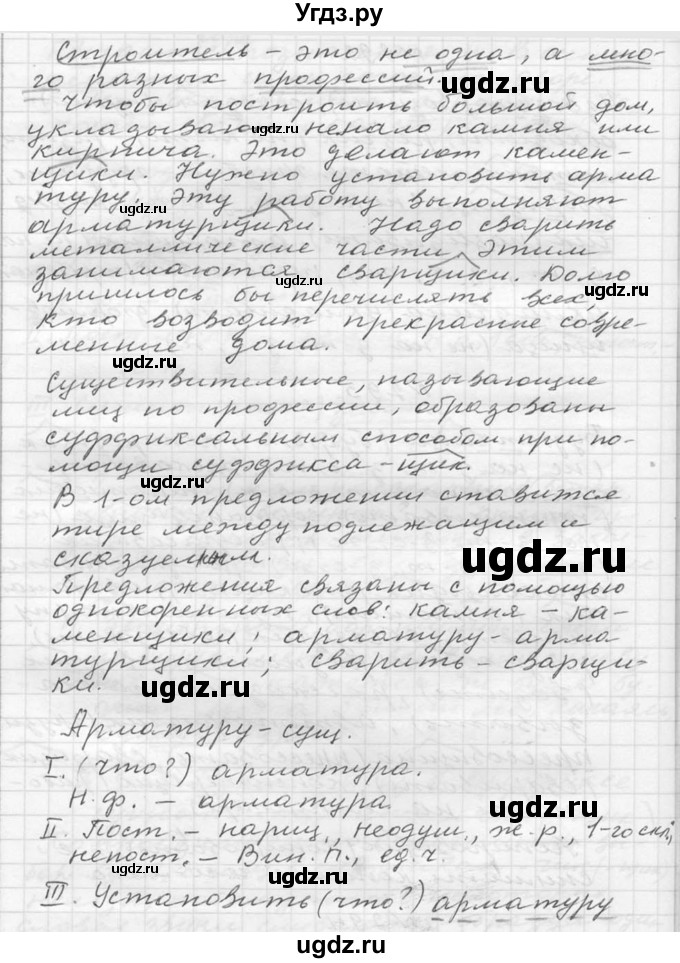 Угдз.ру
Строитель – это не одна, а мно-
го разных профессий.
Чтобы построить большой дом,
укладывают немало камня или
кирпича. Это делают камен-
щики. Нужно установить арма
туру, эту работу выполняют
арматурщики. Надо сварить
металлические части этим
занимаются сварщики. Долго
пришлось бы перечислять всех,
кто возводит прекрасные совре-
менные дома.
Существительные, называющие
лиц по профессии, образованы
суффиксальным способом при по-
мощи суффикса -щик.
В 1-ом предложении ставится
тире между подлежащим и
сказуемым.
Предложения связаны с помощью
однокоренных слов: камня – ка-
менщики; арматуру – арма
турщики; сварить – сварщи-
ки.
Арматуру – сущ.
I. (что?) арматура.
Н.ф. – арматура.
II. Пост. – нариц., неодуш., ж.р., 1-го скл,
непост. – Вин. п., ед.ч.
III. Установить (что?) арматуру
ugdz.ru